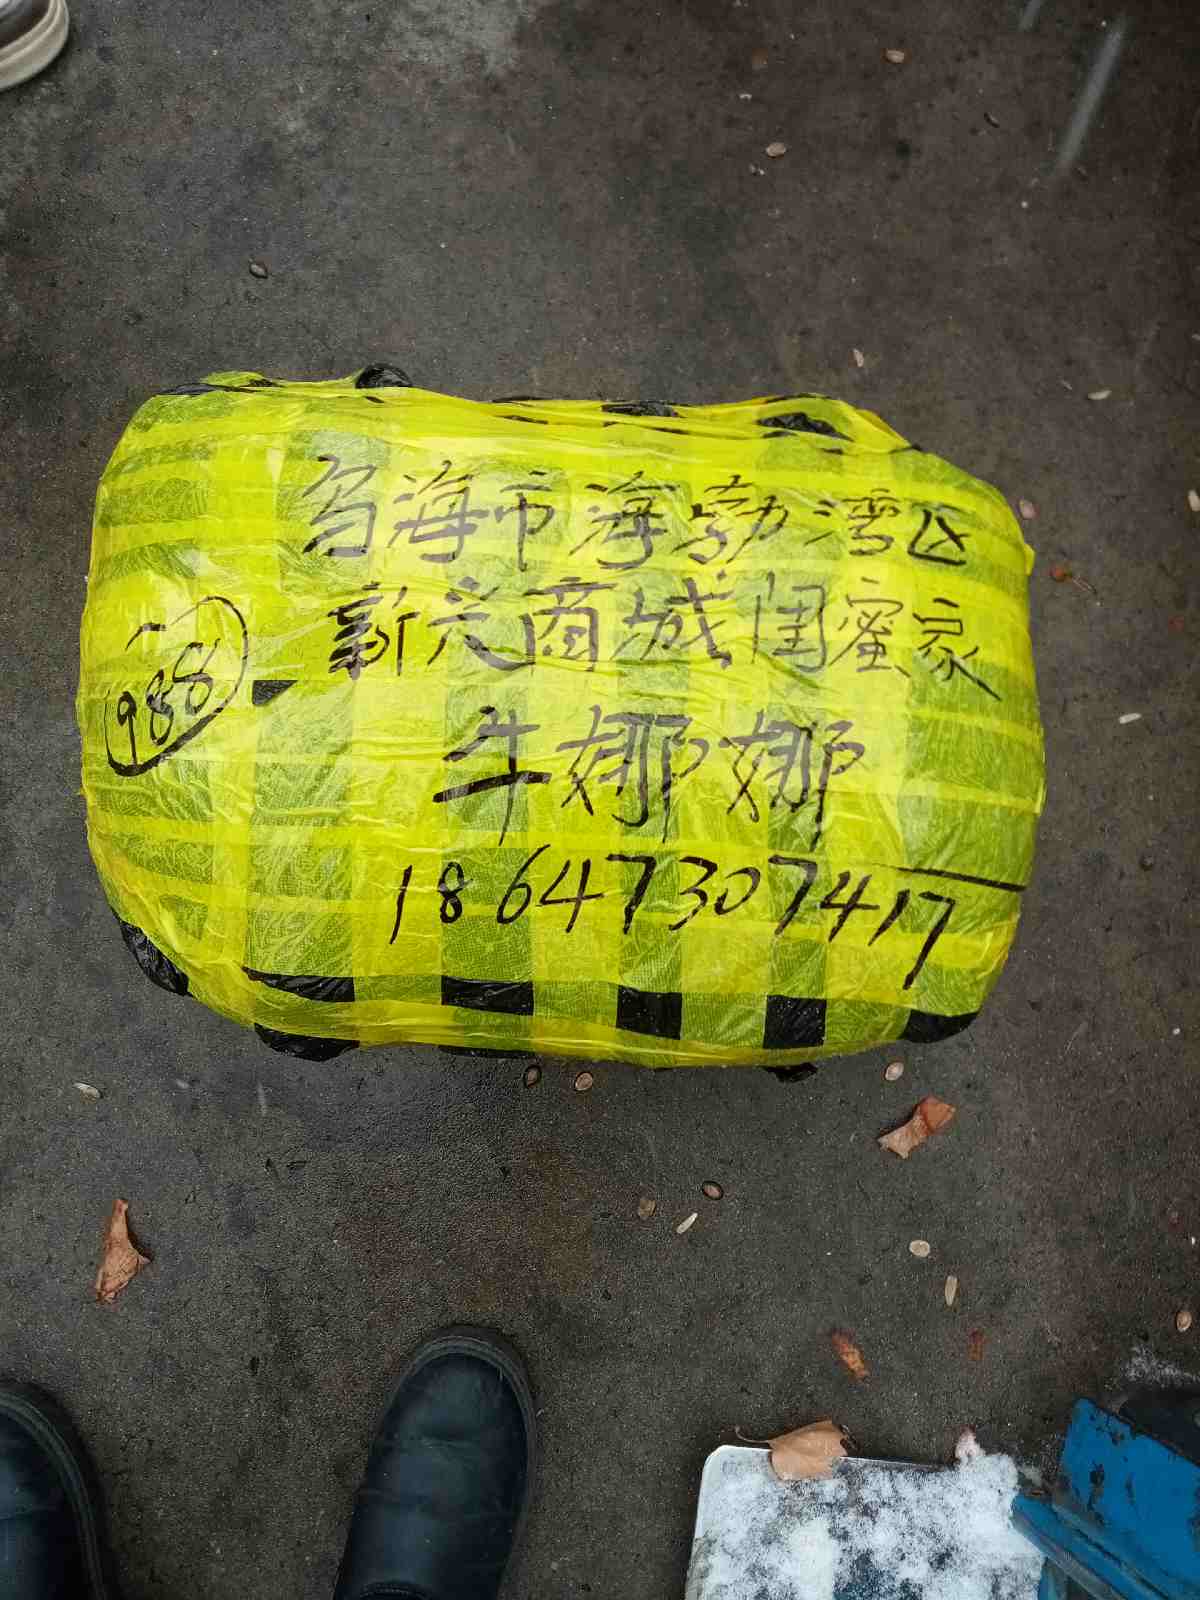 乌海市海勃湾区
新光商城闺蜜家
牛娜娜
18647307417
988